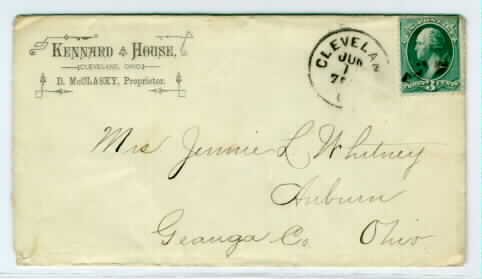 KENNARD HOUSE,
(CLEVELAND, OHIO.)
D. McCLASKY, Proprietor.
CLEVELAN
JUN
1
Mrs Jennie L Whitney
Auburn
Geauga Co. Ohio